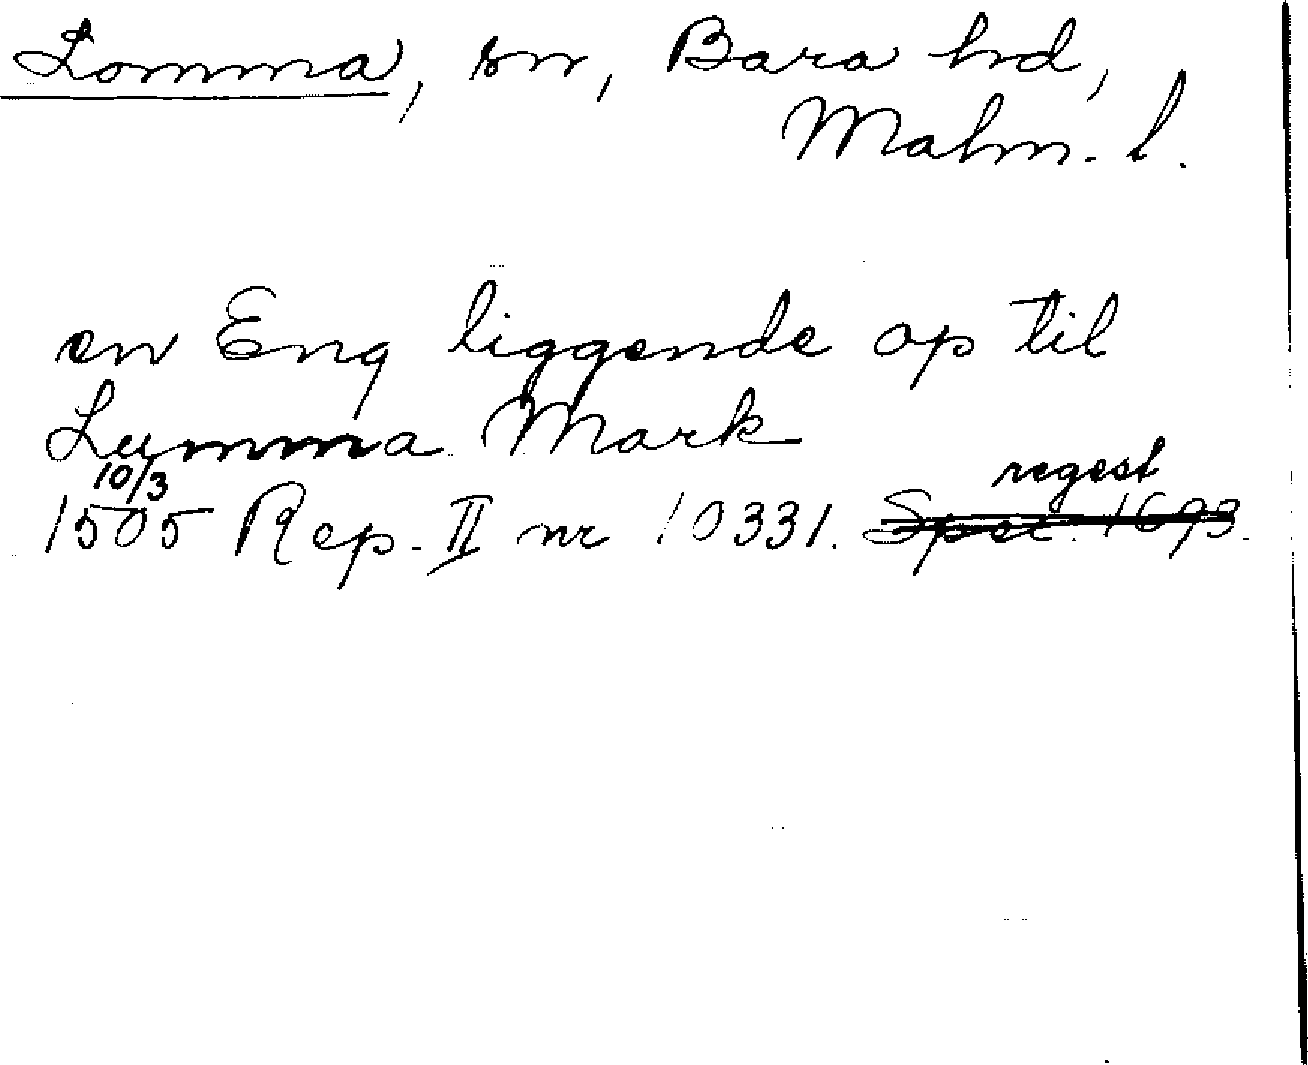 Lomma, sn, Bara hd,
Malm. l.
en Eng liggende op til
Lumma Mark
10/3 regest
1505 Rep. II nr 10331. Spec. 1693.